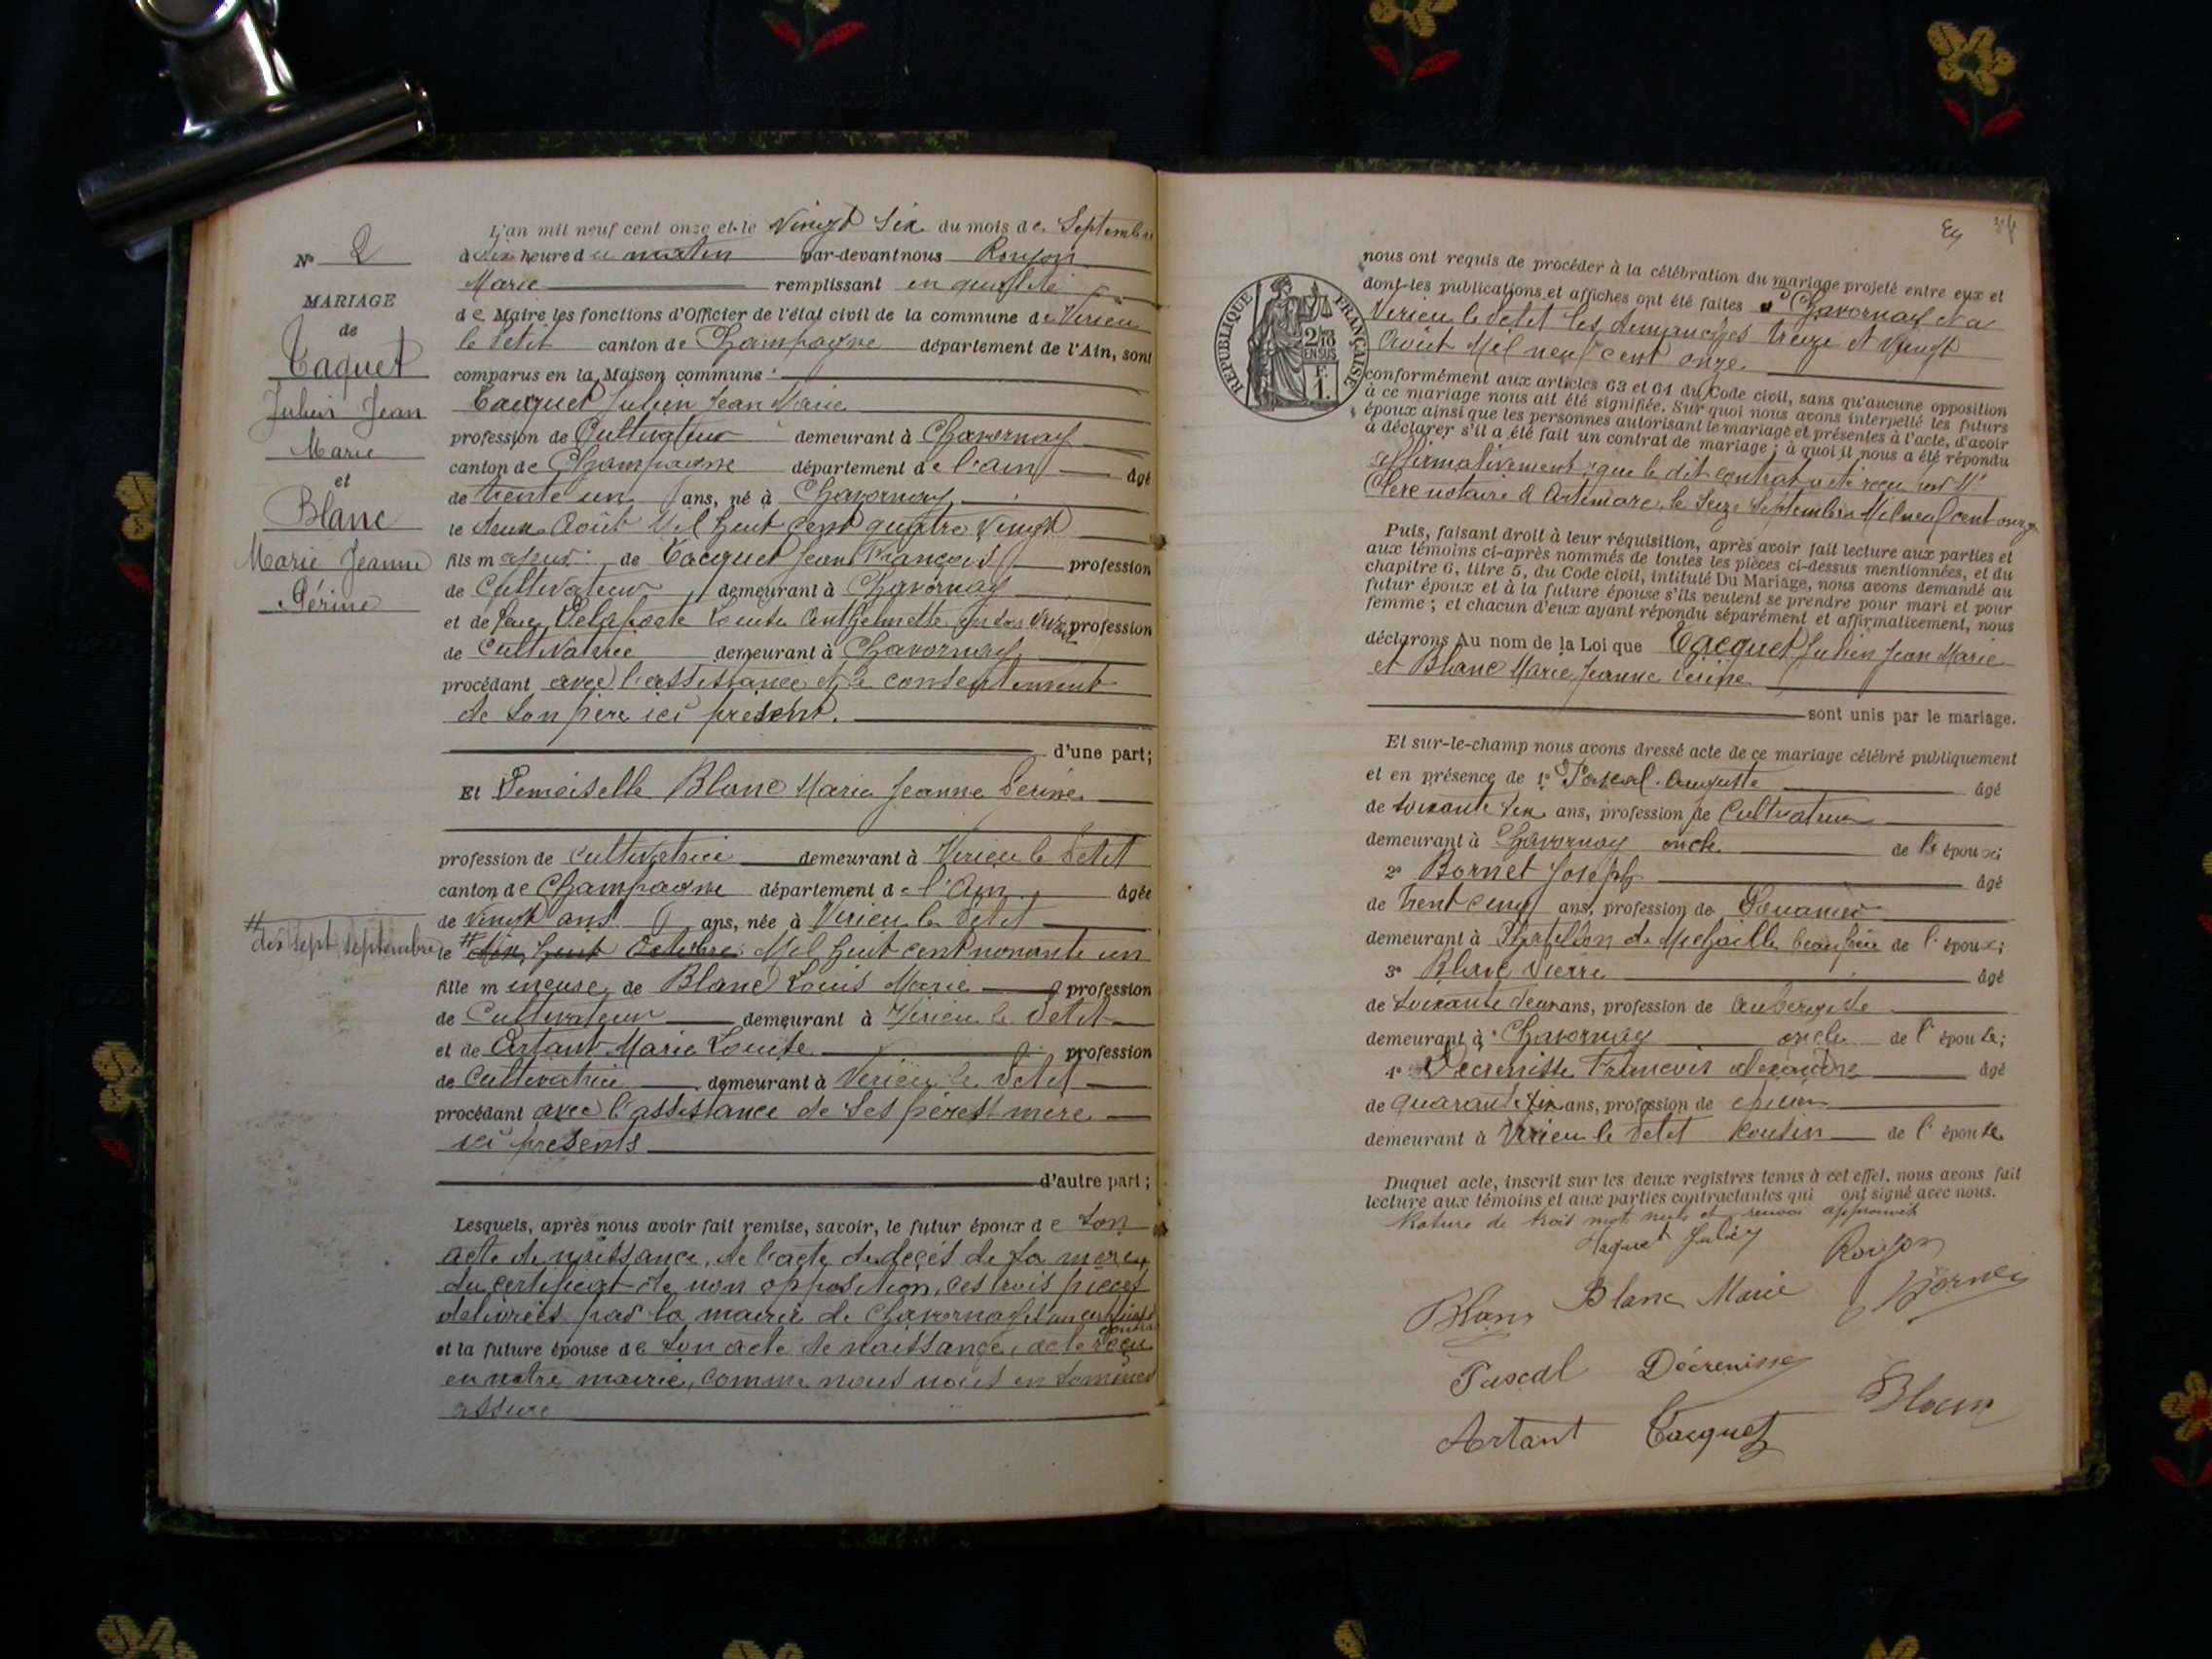 N° 2
MARIAGE
de
Tacquet
Julien Jean
Marie
et
Blanc
Marie Jeanne
Périne
# dix sept septembre
L'an mil neuf cent onze et le Vingt Six du mois de Septembre
à dix heure du matin par-devant nous Roujon
Marie remplissant en qualité
de Maire les fonctions d'Officier de l'état civil de la commune de Virieu
le Petit canton de Champagne département de l'Ain, sont
comparus en la Maison commune :
Tacquet Julien Jean Marie
profession de Cultivateur demeurant à Chavornay
canton de Champagne département de l'ain âgé
de trente un ans, né à Chavornay
le deux Août Mil huit cent quatre vingt
fils majeur de Tacquet Jean François profession
de Cultivateur demeurant à Chavornay
et de feue Delaporte Louise Anthelmette en son vivant profession
de Cultivatrice demeurant à Chavornay
procédant avec l'assistance et le consentement
de son père ici présent.
d'une part;
Et Demoiselle Blanc Marie Jeanne Perine
profession de cultivatrice demeurant à Virieu le Petit
canton de Champagne département de l'Ain âgée
de vingt ans ans, née à Virieu le Petit
le # dix huit Octobre Mil huit cent nonante un
fille mineuse de Blanc Louis Marie profession
de Cultivateur demeurant à Virieu le Petit
et de Artant Marie Louise profession
de Cultivatrice demeurant à Virieu le Petit
procédant avec l'assistance de ses père et mère
ici présents
d'autre part;
Lesquels, après nous avoir fait remise, savoir, le futur époux de son
acte de naissance, de l'acte de décès de sa mère,
du certificat de non opposition, ces trois pièces
délivrées par la mairie de Chavornay et un certificat
contrat
et la future épouse de son acte de naissance, acte reçu
en notre mairie, comme nous nous en sommes
assuré
34
nous ont requis de procéder à la célébration du mariage projeté entre eux et
dont les publications et affiches ont été faites à Chavornay et à
Virieu le Petit les dimanches treize et vingt
Août Mil neuf cent onze
RÉPUBLIQUE FRANÇAISE
2/10
EN SUS
F.
1.
conformément aux articles 63 et 64 du Code civil, sans qu'aucune opposition
à ce mariage nous ait été signifiée. Sur quoi nous avons interpellé les futurs
époux ainsi que les personnes autorisant le mariage et présentes à l'acte, d'avoir
à déclarer s'il a été fait un contrat de mariage ; à quoi il nous a été répondu
affirmativement, que le dit contrat a été reçu par Me
Clerc notaire à Artemare, le seize Septembre Mil neuf cent onze
Puis, faisant droit à leur réquisition, après avoir fait lecture aux parties et
aux témoins ci-après nommés de toutes les pièces ci-dessus mentionnées, et du
chapitre 6, titre 5, du Code civil, intitulé Du Mariage, nous avons demandé au
futur époux et à la future épouse s'ils veulent se prendre pour mari et pour
femme ; et chacun d'eux ayant répondu séparément et affirmativement, nous
déclarons Au nom de la Loi que Tacquet Julien Jean Marie
et Blanc Marie Jeanne Perine
sont unis par le mariage.
Et sur-le-champ nous avons dressé acte de ce mariage célébré publiquement
et en présence de 1° Pascal Auguste âgé
de soixante six ans, profession de Cultivateur
demeurant à Chavornay oncle de l'époux;
2° Bornet Joseph âgé
de trent cinq ans, profession de Douanier
demeurant à Chatillon de Michaille beau frère de l'époux;
3° Blanc Pierre âgé
de soixante deux ans, profession de Aubergiste
demeurant à Chavornay oncle de l'épouse;
4° Décrenisse François alexandre âgé
de quarante six ans, profession de épicier
demeurant à Virieu le Petit Cousin de l'épouse
Duquel acte, inscrit sur les deux registres tenus à cet effet, nous avons fait
lecture aux témoins et aux parties contractantes qui ont signé avec nous.
Rature de trois mots nuls et renvoi approuvés
Taquet Julien Roujon
Blanc Blanc Marie Bornet
Pascal Décrenisse
Artant Tacquet Blanc